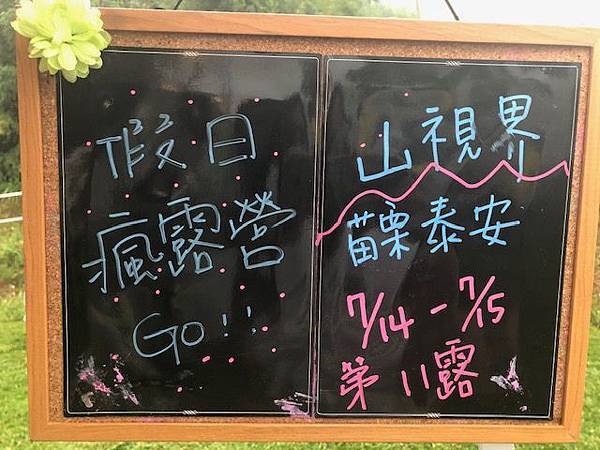 假日
瘋露營
Go!!
山視界
苗栗泰安
7/14-7/15
第11露